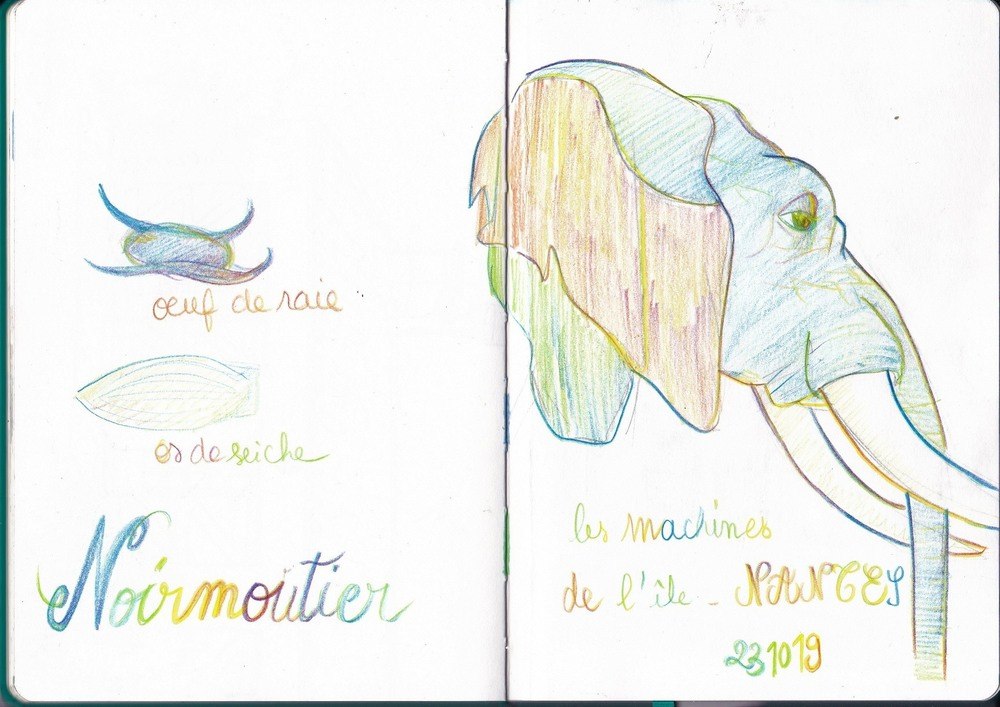 œuf de raie
os de seiche
Noirmoutier
les machines
de l'île - NANTES
231019